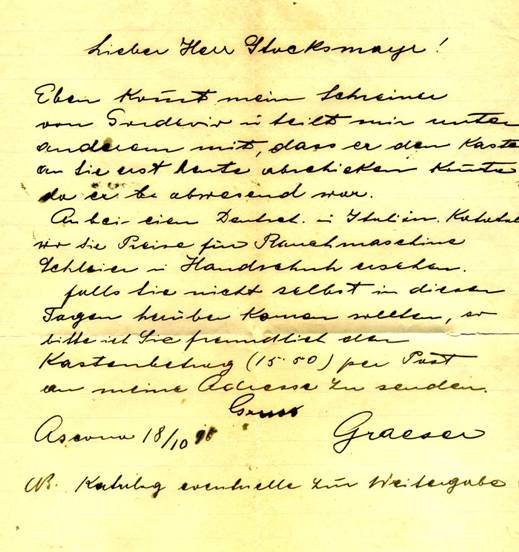 Lieber Herr Stocksmayr!
Eben kom̅t mein Schreiner
von Gredevio u teilt mir unter
anderem mit, dass er den Kasten
an Sie erst heute abschicken kon̅te
da er abwesend war.
Anbei eien Deutsch. u Italien. Katalog
wo Sie Preise für Rauchmaschine
Schleier u Handschuh ersehen.
falls Sie nicht selbst in diesen
Tagen herüber kom̅en sollten, so
bitte ich Sie freundlich den
Kastenbetrag (15.50) per Post
an meine Adresse zu senden.
Gruss
Ascona 18/10
Graeser
NB. Katalog eventuelle zur Weitergabe